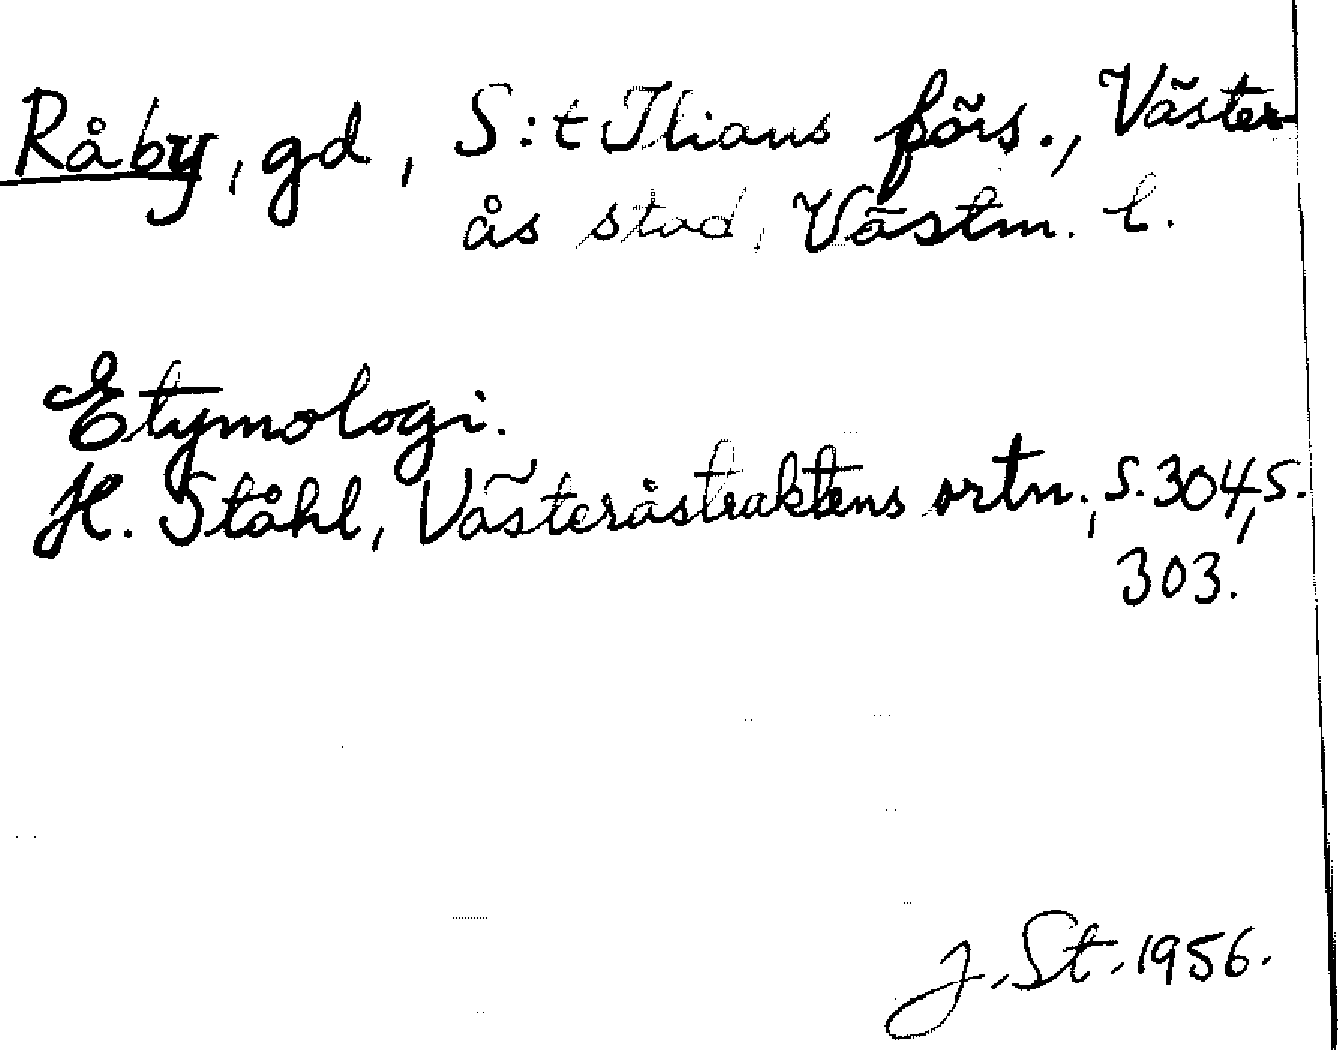 Råby, gd, S:t Ilians förs., Väster
ås stad, Västm. l.
Etymologi.
H. Ståhl, Västeråstraktens ortn., s. 304, s.
303.
J. St. 1956.